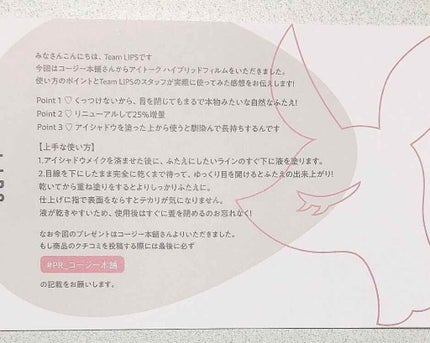 みなさんこんにちは、Team LIPSです
今回はコージー本舗さんからアイトーク ハイブリッドフィルムをいただきました。
使い方のポイントとTeam LIPSのスタッフが実際に使ってみた感想をお伝えします!
Point 1 ♡ くっつけないから、目を閉じてもまるで本物みたいな自然なふたえ!
Point 2 ♡ リニューアルして25%増量
Point 3 ♡ アイシャドウを塗った上から使うと馴染んで長持ちするんです
【上手な使い方】
1.アイシャドウメイクを済ませた後に、ふたえにしたいラインのすぐ下に液を塗ります。
2.目線を下にしたまま完全に乾くまで待って、ゆっくり目を開けるとふたえの出来上がり!
乾いてから重ね塗りをするとよりしっかりふたえに。
仕上げに指で表面をならすとテカリが気になりません。
液が乾きやすいため、使用後はすぐに蓋を閉めるのお忘れなく!
なお今回のプレゼントはコージー本舗さんよりいただきました。
もし商品のクチコミを投稿する際には最後に必ず
#PR_コージー本舗
の記載をお願いします。